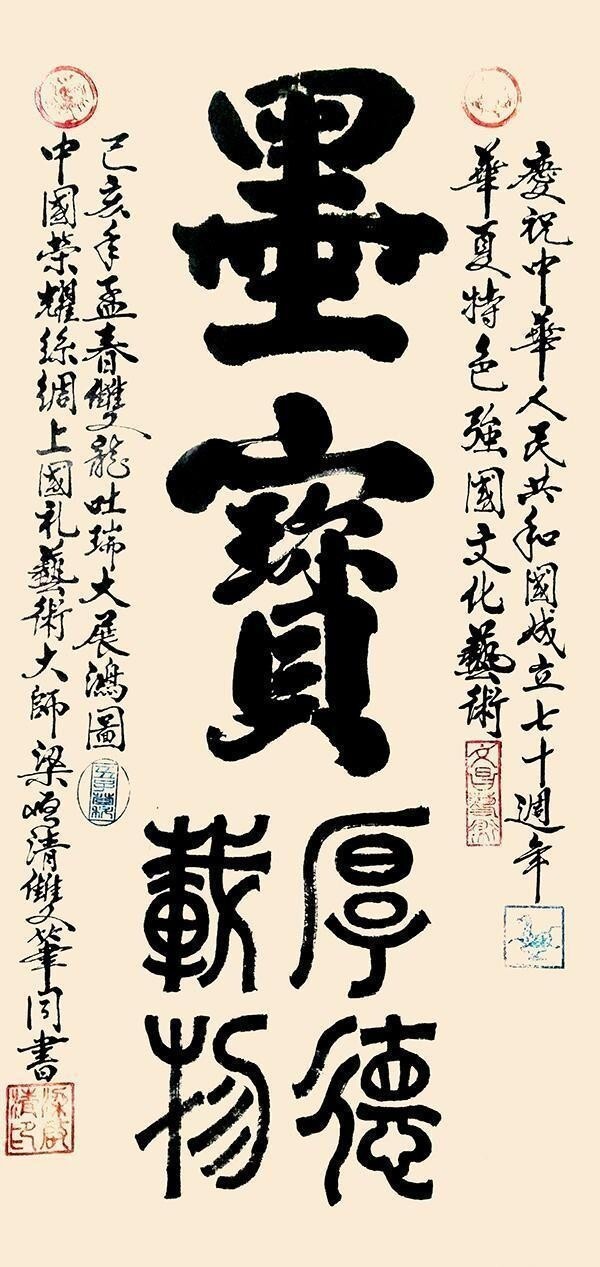 慶祝中華人民共和國成立七十週年
華夏特色強國文化藝術
墨寶
厚德
載物
己亥年孟春雙龍吐瑞大展鴻圖
中國榮耀絲綢上國礼藝術大師梁啓清雙筆同書